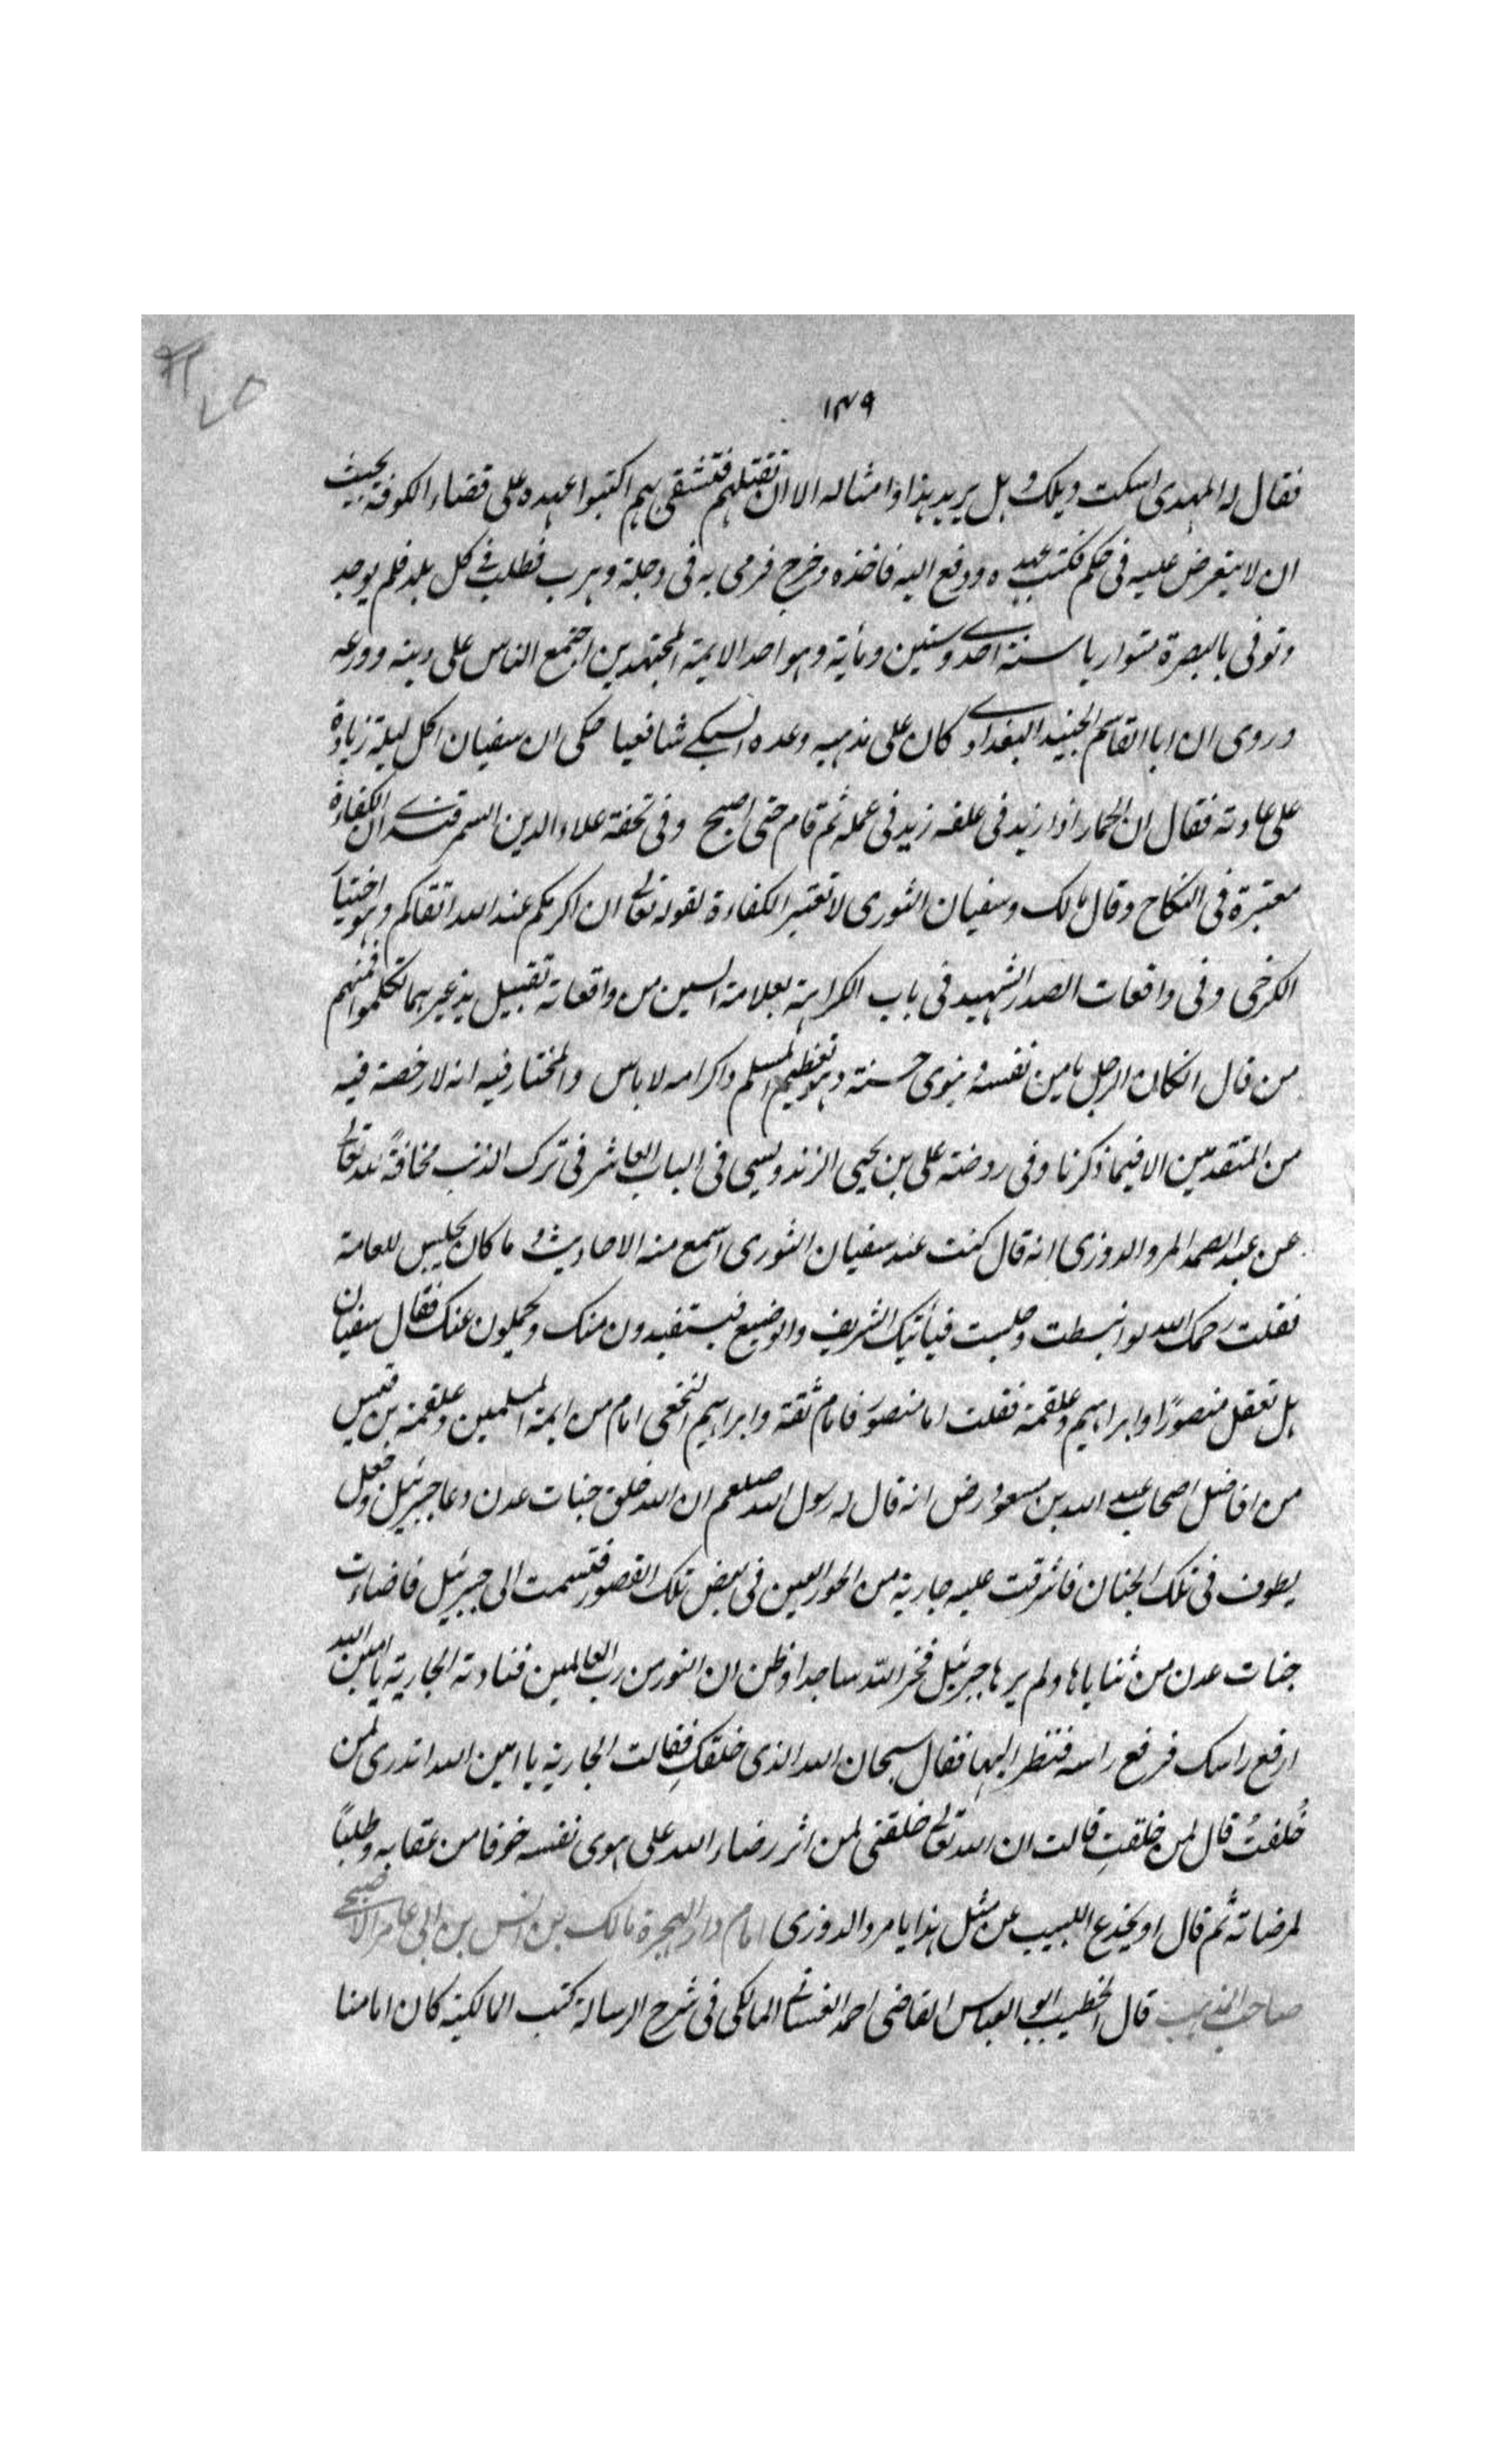 ١٣٩
فقال له المهدى اسكت ويلك وهل يريد هذا وامثاله الا ان تقتلهم فتشقى بهم اكتبوا عهده على قضاء الكوفة بحيث
ان لا يتعرض عليه فى حكم فكتب عهده ودفع اليه فاخذه وخرج فرمى به فى دجلة وهرب فطلب فى كل بلد فلم يوجد
وتوفى بالبصرة متواريا سنة احدى وستين ومأية وهو احد الايمة المجتهدين اجتمع الناس على دينه وورعه
وروى ان ابا القاسم الجنيد البغدادى كان على مذهبه وعده السبكى شافعيا حكى ان سفيان اكل ليلة زيادة
على عادته فقال ان الحمار اذا زيد فى علفه زيد فى عمله ثم قام حتى اصبح وفى تحفة علاء الدين السمرقندى ان الكفاءة
معتبرة فى النكاح وقال مالك وسفيان الثورى لا تعتبر الكفاءة لقوله تعالى ان اكرمكم عند الله اتقاكم وهو اختيار
الكرخى وفى واقعات الصدر الشهيد فى باب الكراهة بعلامة السين من واقعاته تقبيل يد غيرهما تكلموا فمنهم
من قال انكان الرجل يامن نفسه وينوى حسنة وهو تعظيم المسلم واكرامه لا باس والمختار فيه انه لا رخصة فيه
من المتقدمين الا فيما ذكرنا وفى روضة على بن يحيى الزندويسى فى الباب العاشر فى ترك الذنب مخافةً لله تعالى
عن عبد الصمد المرو الدوزى انه قال كنت عند سفيان الثورى اسمع منه الاحاديث و ما كان يجلس للعامة
فقلت رحمك الله لو انبسطت وجلست فيأتيك الشريف والوضيع فيستفيدون منك ويحملون عنك فقال سفيان
هل تعقل منصورًا وابراهيم وعلقمة فقلت اما منصور فامام ثقة وابراهيم النخعى امام من ايمة المسلمين وعلقمة بن قيس
من افاضل اصحاب عبد الله بن مسعود رض انه قال له رسول الله صلعم ان الله خلق جنات عدن ودعا جبرئيل وجعل
يطوف فى تلك الجنان فاشرقت عليه جارية من الحور العين فى بعض تلك القصور فتبسمت الى جبرئيل فاضاءت
جنات عدن من ثناياها ولم يرها جبرئيل فخر لله ساجدا وظن ان النور من رب العالمين فنادته الجارية يا امين الله
ارفع راسك فرفع راسه فنظر اليها فقال سبحان الله الذى خلقكِ فقالت الجارية يا امين الله اتدرى لمن
خُلقتُ قال لمن خلقتِ قالت ان الله تعالى خلقنى لمن اثر رضاء الله على هوى نفسه خوفا من عقابه وطلبًا
لمرضاته ثم قال او يخدع اللبيب عن مثل هذا يا مرو الدوزى امام دار الهجرة مالك بن انس بن ابى عامر الاصبحى
صاحب المذهب قال الخطيب ابو العباس القاضى احمد الغسانى المالكى فى شرح الرسالة كتب المالكية كان امامنا